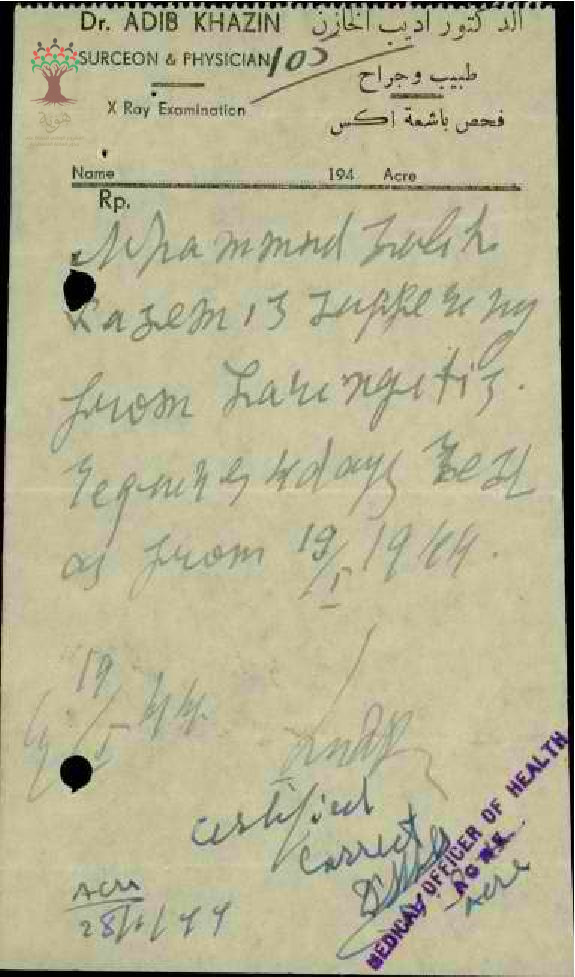 Dr. ADIB KHAZIN الدكتور اديب الخازن
SURGEON & PHYSICIAN 103
طبيب وجراح
X Ray Examination
فحص باشعة اكس
هوية
Name 194 Acre
Rp.
Mhammad Saleh
Kasem is suffering
from Laringitis.
requires 4 days Rest
as from 19/I 1944.
19/I 44
certified
correct
MEDICAL OFFICER OF HEALTH
ACRE
Acre
Acre
28/1/44